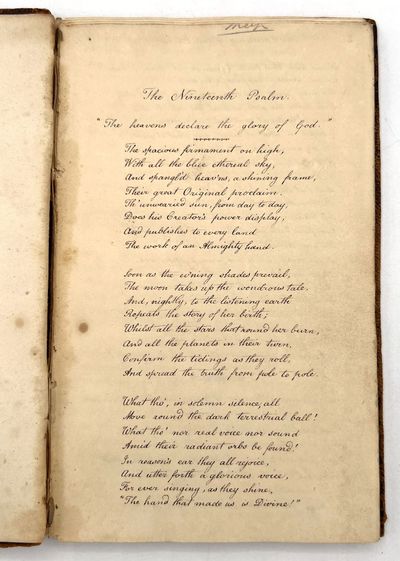 The Nineteenth Psalm.
"The heavens declare the glory of God."
The spacious firmament on high,
With all the blue ethereal sky,
And spangl'd heav'ns, a shining frame,
Their great Original proclaim.
Th' unwearied sun, from day to day,
Does his Creator's power display,
And publishes to every land
The work of an Almighty hand.
Soon as the ev'ning shades prevail,
The moon takes up the wondrous tale.
And, nightly, to the listening earth
Repeats the story of her birth;
Whilst all the stars that round her burn,
And all the planets in their turn,
Confirm the tidings as they roll,
And spread the truth from pole to pole.
What tho', in solemn silence, all
Move round the dark terrestrial ball!
What tho' nor real voice nor sound
Amid their radiant orbs be found!
In reason's ear they all rejoice,
And utter forth a glorious voice,
For ever singing, as they shine,
"The hand that made us is Divine!"